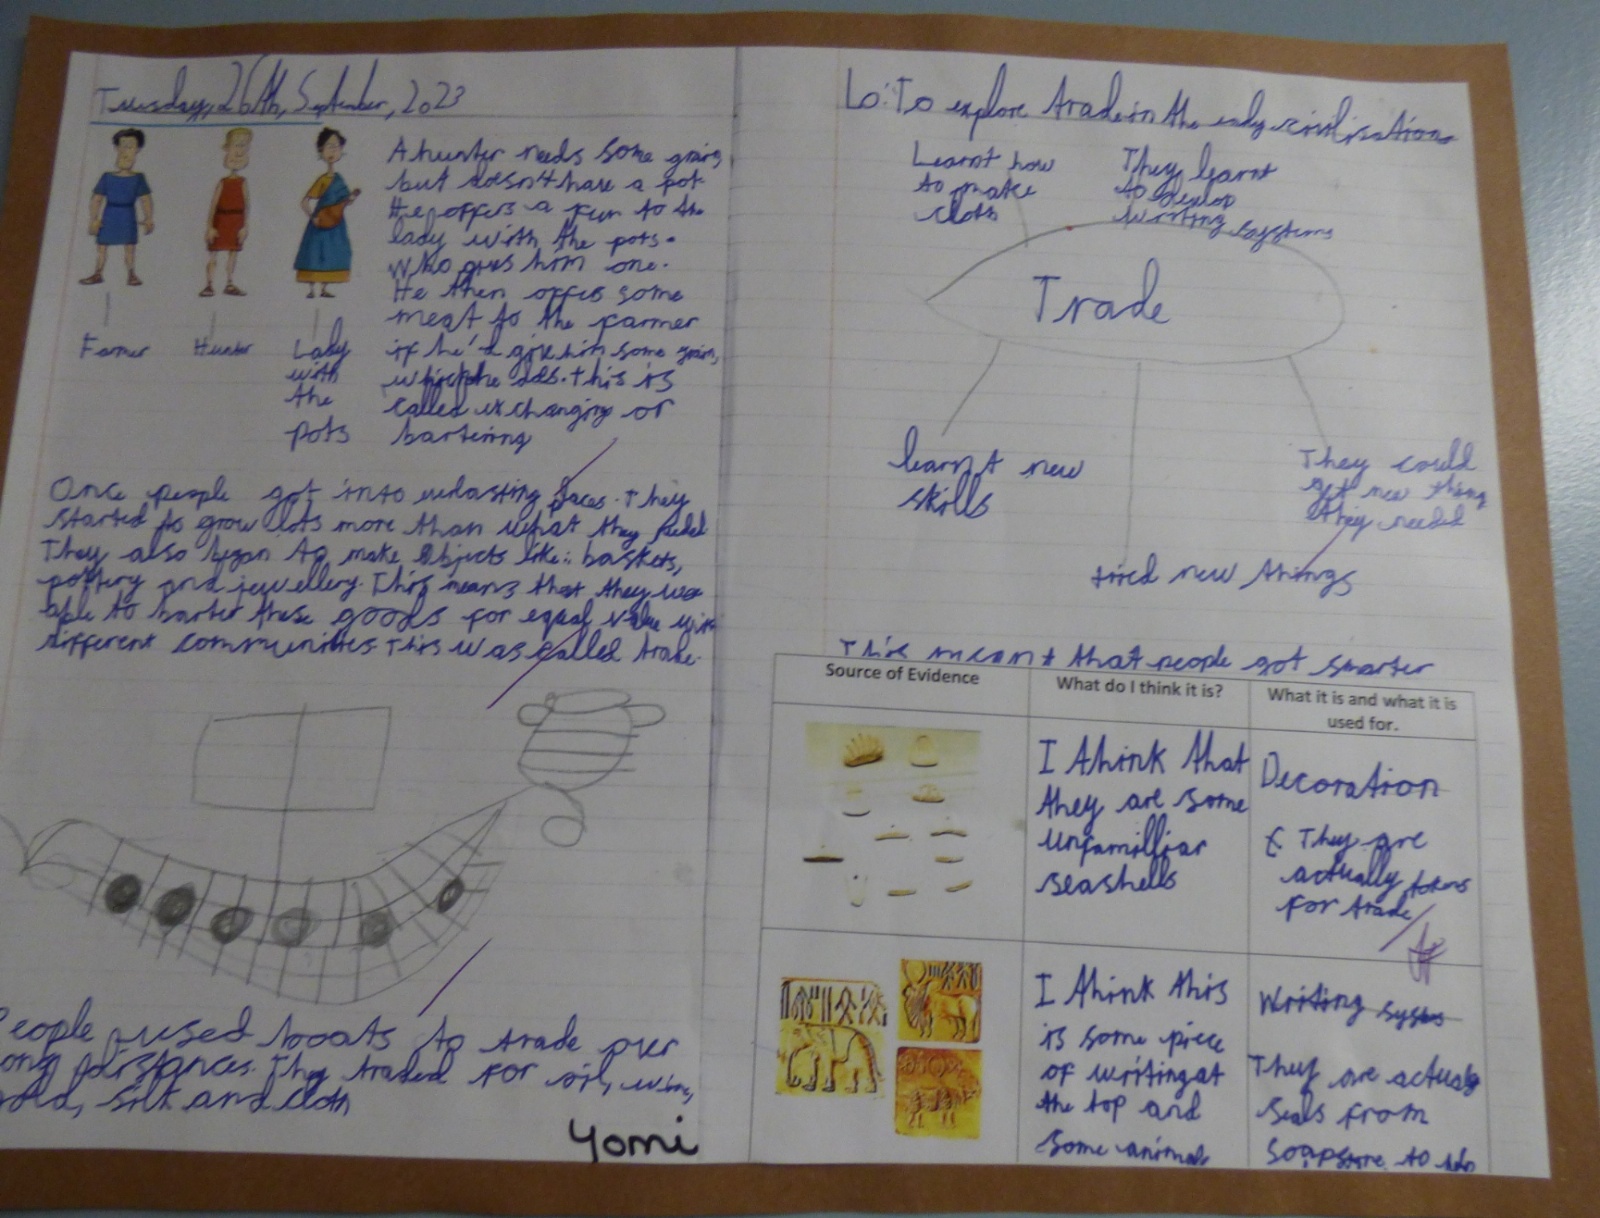 Tuesday, 26th, September, 2023
A hunter needs some grain,
but doesn't have a pot.
He offers a fur to the
lady with the pots.
Who gives him one.
He then offers some
meat to the farmer
if he'd give him some grain,
which he does. this is
called exchanging or
bartering
Farmer
Hunter
Lady
with
the
pots
Once people got into everlasting places. They
started to grow lots more than what they
They also began to make objects like: baskets,
pottery and jewellery. This means that they
able to barter these goods for equal value
different communities. This was called trade.
People used boats to trade over
long distances. They traded for oil, wine,
gold, silk and cloth
Yomi
Lo: To explore trade in the early civilisations
Learnt how
to make
cloth
They learnt
to devlop
writing systems
Trade
learnt new
skills
They could
get new things
they needed
tried new things
This meant that people got smarter
Source of Evidence
What do I think it is?
What it is and what it is
used for.
I think that
they are some
unfamilliar
seashells
Decoration
They are
actually tokens
for trade
I think this
is some piece
of writing at
the top and
some animals
Writing
They are actually
seals from
soapstone to